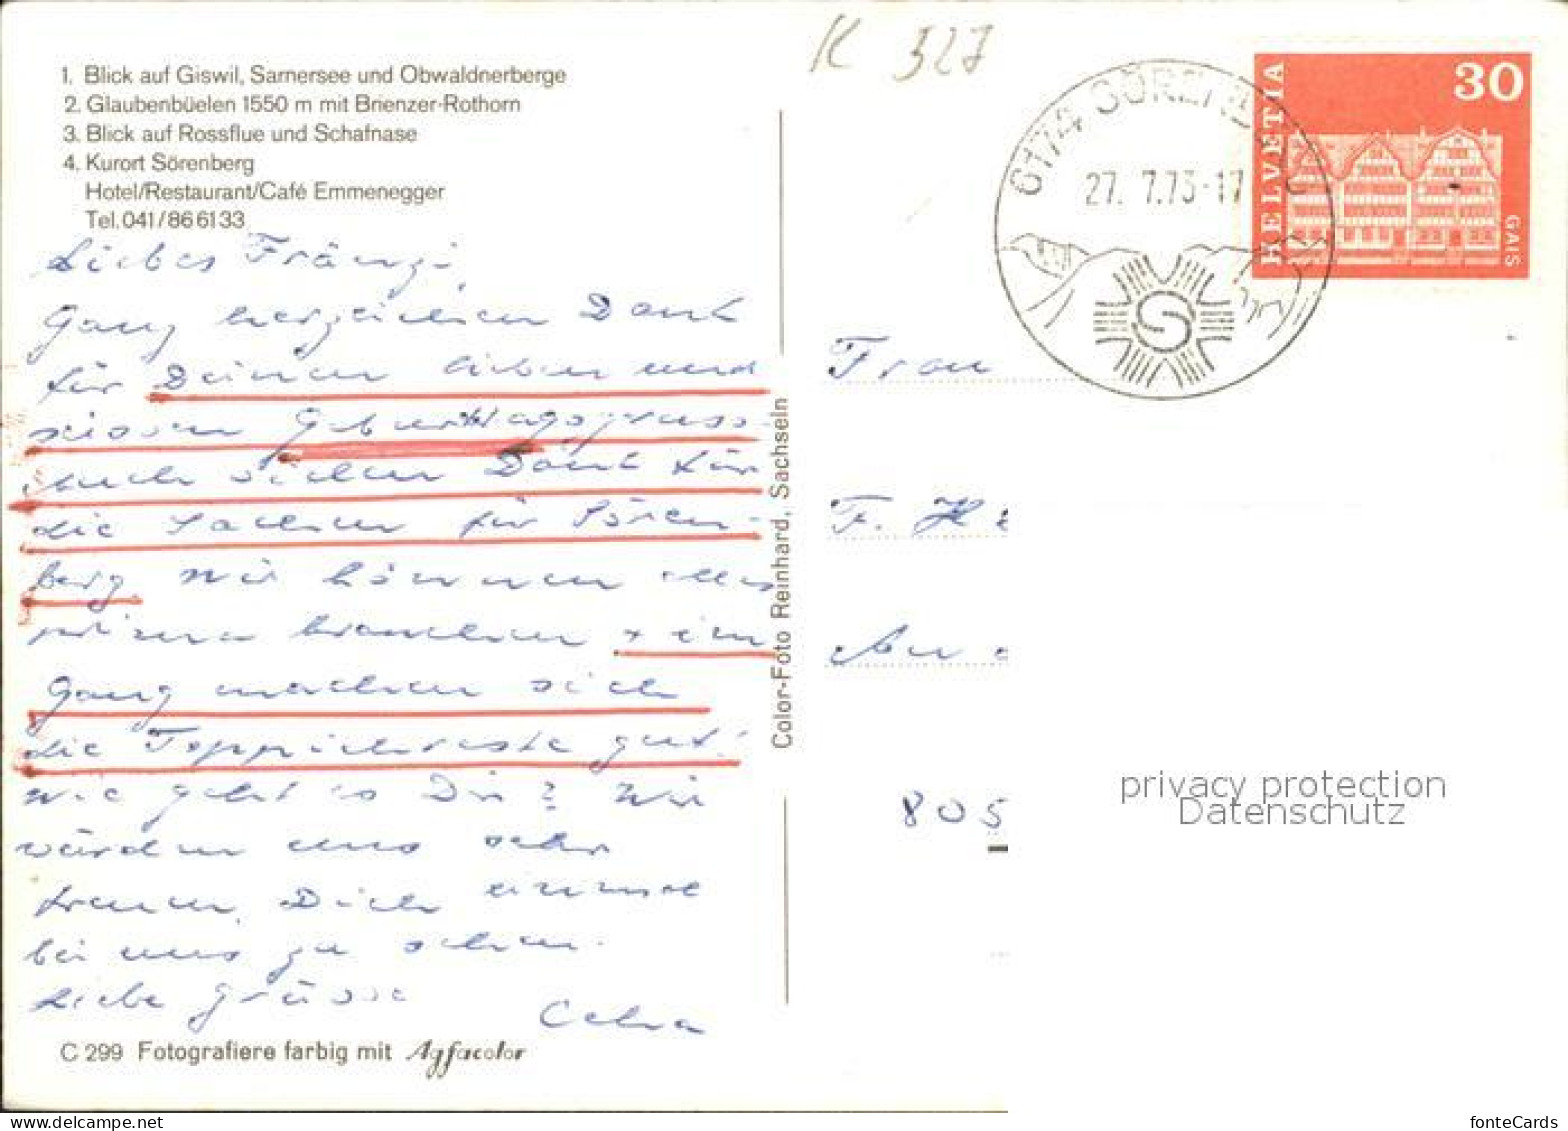 K 327
1. Blick auf Giswil, Sarnersee und Obwaldnerberge
2. Glaubenbüelen 1550 m mit Brienzer-Rothorn
3. Blick auf Rossflue und Schafnase
4. Kurort Sörenberg
Hotel/Restaurant/Café Emmenegger
Tel. 041/86 61 33
Liebes Fränzi,
Ganz herzlichen Dank
für Deinen lieben und
süssen Geburtstagsgruss.
Auch vielen Dank für
die Sachen für Sören-
berg. Wir können alles
prima brauchen + im
Gang machen sich
die Teppichreste gut!
Wie geht es Dir? Wir
würden uns sehr
freuen, Dich einmal
bei uns zu sehen.
Liebe Grüsse
C 299 Fotografiere farbig mit Agfacolor
Color-Foto Reinhard, Sachseln
6174 SÖRENBERG
27. 7.73-17
HELVETIA
30
GAIS
Frau
F. H
805
privacy protection
Datenschutz
www.delcampe.net
fonteCards